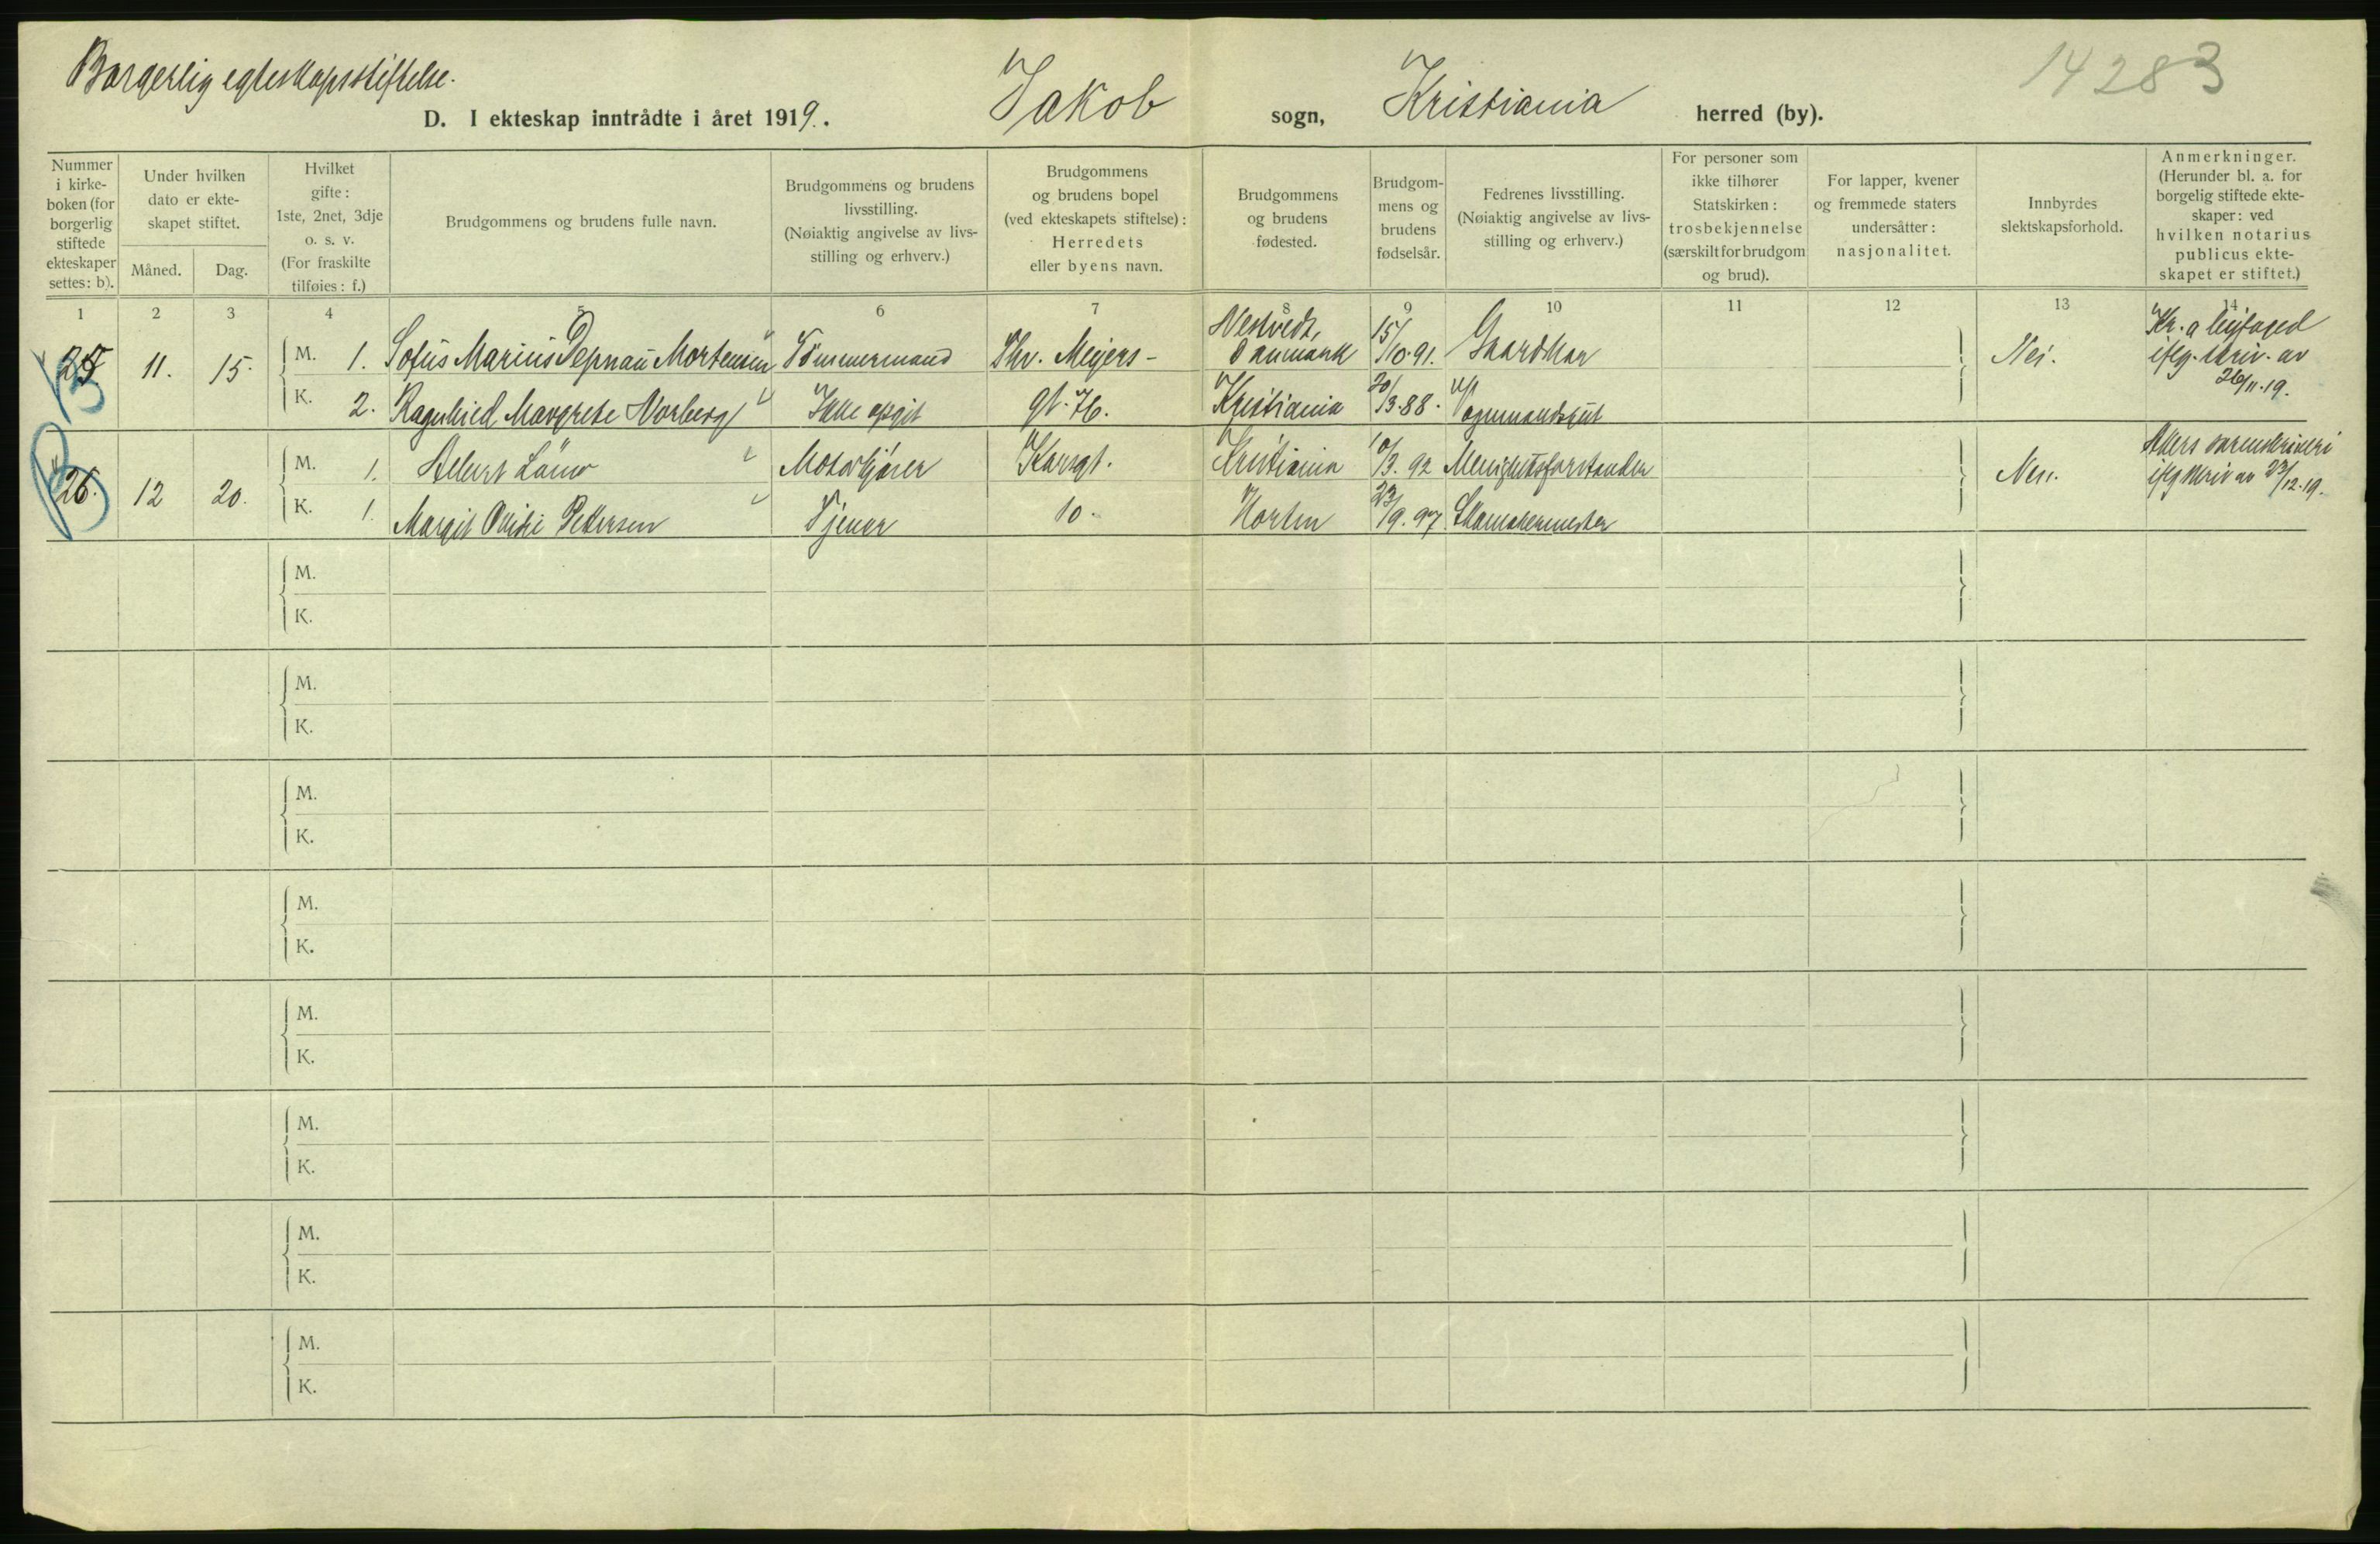 Borgerlig egteskapsstiftelse.
14283
D. I ekteskap inntrådte i året 1919. Jakob sogn, Kristiania herred (by).
Nummer i kirkeboken (for borgerlig stiftede ekteskaper settes: b).
Under hvilken dato er ekteskapet stiftet.
Måned. Dag.
Hvilket gifte: 1ste, 2net, 3dje o. s. v. (For fraskilte tilføies: f.)
Brudgommens og brudens fulle navn.
Brudgommens og brudens livsstilling. (Nøiaktig angivelse av livsstilling og erhverv.)
Brudgommens og brudens bopel (ved ekteskapets stiftelse): Herredets eller byens navn.
Brudgommens og brudens fødested.
Brudgommens og brudens fødselsår.
Fedrenes livsstilling. (Nøiaktig angivelse av livsstilling og erhverv.)
For personer som ikke tilhører Statskirken: trosbekjennelse (særskilt for brudgom og brud).
For lapper, kvener og fremmede staters undersåtter: nasjonalitet.
Innbyrdes slektskapsforhold.
Anmerkninger. (Herunder bl. a. for borgelig stiftede ekteskaper: ved hvilken notarius publicus ekteskapet er stiftet.)
1 2 3 4 5 6 7 8 9 10 11 12 13 14
25 11. 15. M. 1. Sofus Marius Depnau Mortensen Tømmermand Thv. Meyers- Nestvedt, Danmark 15/10.91. Gaardskar Nei. Kr.a byfoged ifølg. skriv. av 26/11.19.
K. 2. Ragnhild Margrete Norberg Ikke opgit gt. 76. Kristiania 20/3.88. Vognmandskust
26. 12 20. M. 1. Albert Motorkjører Karsgt. Kristiania 10/3.92 Menighetsforstander Nei. Akers sorenskriveri ifølg skriv av 23/12.19.
K. 1. Margit Petersen Tjener 10. Horten 23/9.97 Skomakermester
M.
K.
M.
K.
M.
K.
M.
K.
M.
K.
M.
K.
M.
K.
M.
K.